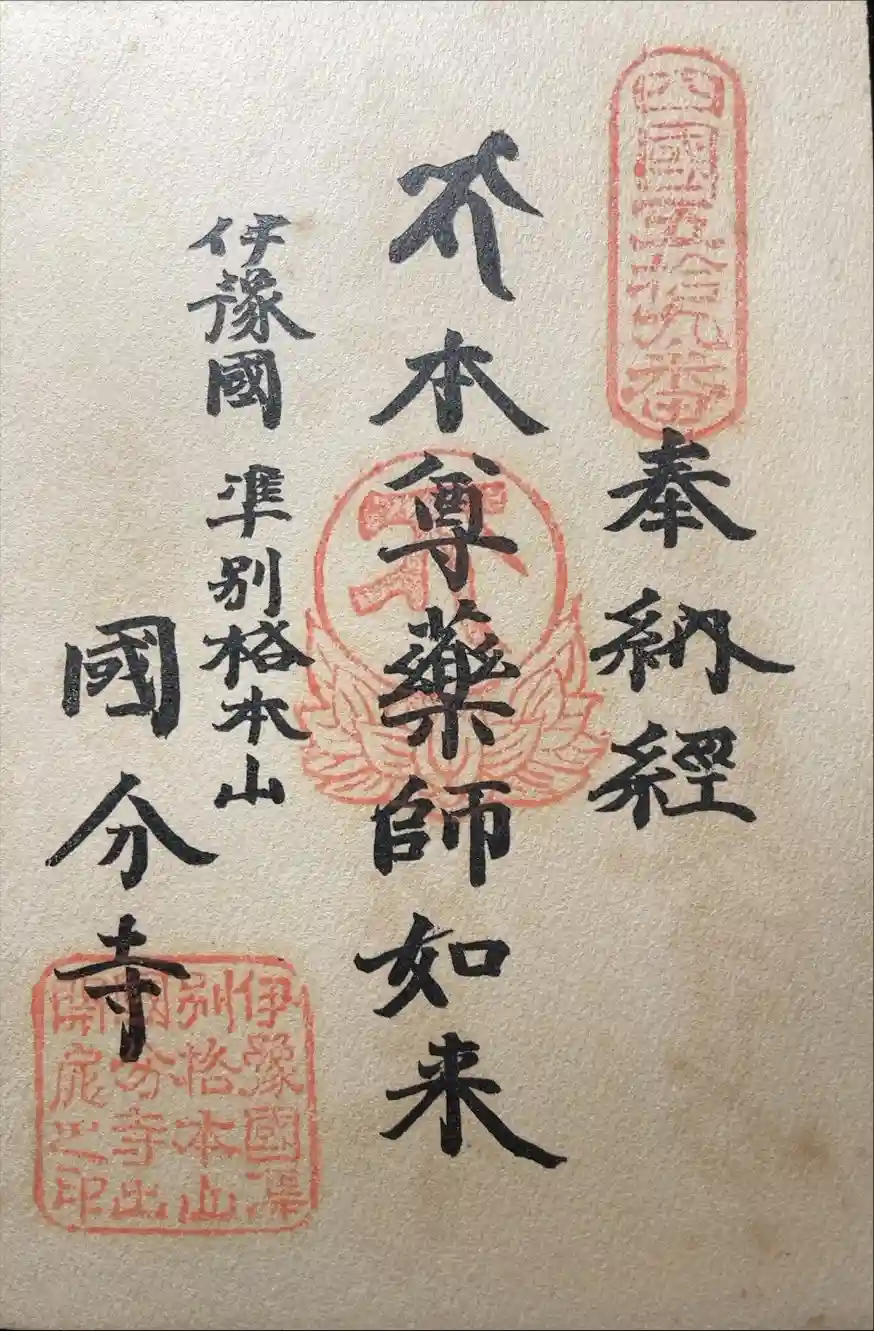 四國五拾九番
奉納經
本尊藥師如来
伊豫國 準別格本山
國分寺
伊豫國準
別格本山
國分寺出
開之印